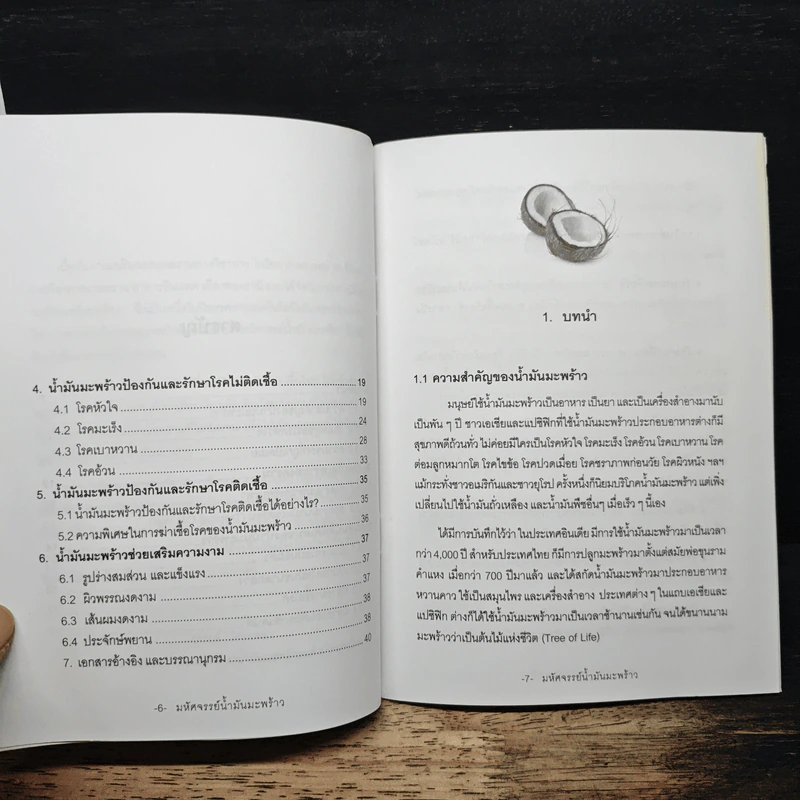 4. น้ำมันมะพร้าวป้องกันและรักษาโรคไม่ติดเชื้อ ........................ 19
4.1 โรคหัวใจ ........................ 19
4.2 โรคมะเร็ง ........................ 24
4.3 โรคเบาหวาน ........................ 28
4.4 โรคอ้วน ........................ 33
5. น้ำมันมะพร้าวป้องกันและรักษาโรคติดเชื้อ ........................ 35
5.1 น้ำมันมะพร้าวป้องกันและรักษาโรคติดเชื้อได้อย่างไร? ............ 35
5.2 ความพิเศษในการฆ่าเชื้อโรคของน้ำมันมะพร้าว .................. 36
6. น้ำมันมะพร้าวช่วยเสริมความงาม ........................ 37
6.1 รูปร่างสมส่วน และแข็งแรง ........................ 37
6.2 ผิวพรรณงดงาม ........................ 37
6.3 เส้นผมงดงาม ........................ 38
6.4 ประจักษ์พยาน ........................ 38
7. เอกสารอ้างอิง และบรรณานุกรม ........................ 40
-6- มหัศจรรย์น้ำมันมะพร้าว
1. บทนำ
1.1 ความสำคัญของน้ำมันมะพร้าว
มนุษย์ใช้น้ำมันมะพร้าวเป็นอาหาร เป็นยา และเป็นเครื่องสำอางมานับ
เป็นพัน ๆ ปี ชาวเอเซียและแปซิฟิกที่ใช้น้ำมันมะพร้าวประกอบอาหารต่างก็มี
สุขภาพดีถ้วนทั่ว ไม่ค่อยมีใครเป็นโรคหัวใจ โรคมะเร็ง โรคอ้วน โรคเบาหวาน โรค
ต่อมลูกหมากโต โรคไขข้อ โรคปวดเมื่อย โรคชราภาพก่อนวัย โรคผิวหนัง ฯลฯ
แม้กระทั่งชาวอเมริกันและชาวยุโรป ครั้งหนึ่งก็นิยมบริโภคน้ำมันมะพร้าว แต่เพิ่ง
เปลี่ยนไปใช้น้ำมันถั่วเหลือง และน้ำมันพืชอื่นๆ เมื่อเร็ว ๆ นี้เอง
ได้มีการบันทึกไว้ว่า ในประเทศอินเดีย มีการใช้น้ำมันมะพร้าวมาเป็นเวลา
กว่า 4,000 ปี สำหรับประเทศไทย ก็มีการปลูกมะพร้าวมาตั้งแต่สมัยพ่อขุนราม
คำแหง เมื่อกว่า 700 ปีมาแล้ว และได้สกัดน้ำมันมะพร้าวมาประกอบอาหาร
หวานคาว ใช้เป็นสมุนไพร และเครื่องสำอาง ประเทศต่าง ๆ ในแถบเอเซียและ
แปซิฟิก ต่างก็ได้ใช้น้ำมันมะพร้าวมาเป็นเวลาช้านานเช่นกัน จนได้ขนานนาม
มะพร้าวว่าเป็นต้นไม้แห่งชีวิต (Tree of Life)
-7- มหัศจรรย์น้ำมันมะพร้าว